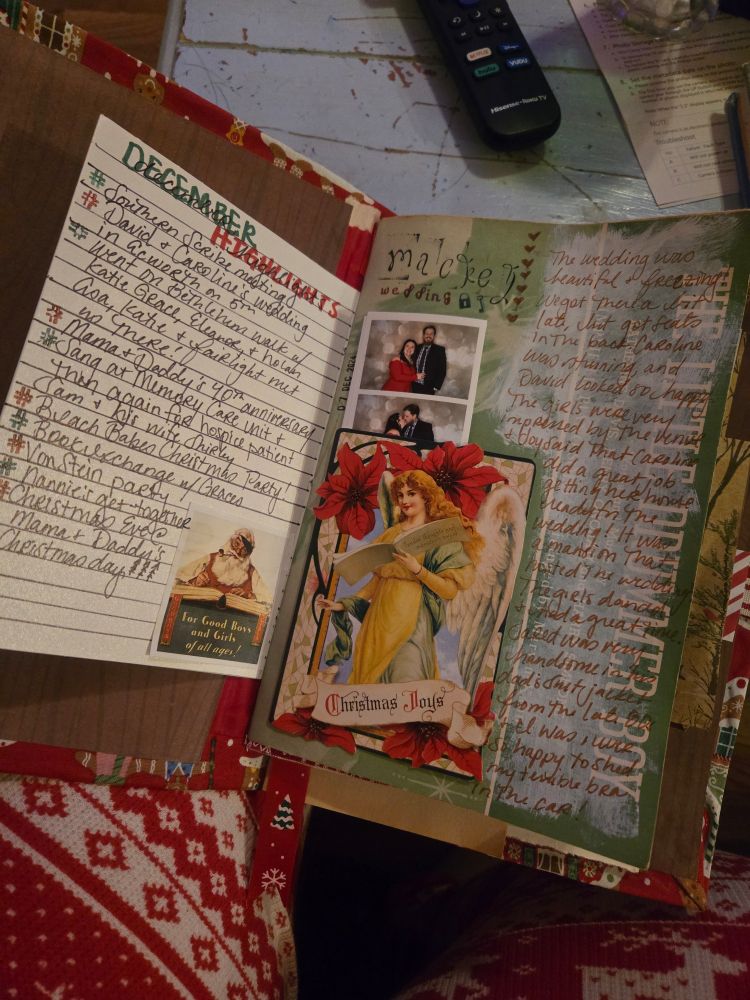 DECEMBER
HIGHLIGHTS
# Southern Scribe meeting
# David & Caroline's wedding
in Acworth on 5th
# Went on Bethlehem walk w/
Katie Grace, Eleanor & Norah
Asa, Katie & fairlight met
us there!
# Mama & Daddy's 40th anniversary
# Sang at Memory Care Unit &
then again for hospice patient
Sam & his wife Shirley
# Bleach Babes Christmas Party!
# Book exchange w/ Graces
# VonStein party
# Nannie's get-together
# Christmas Eve @
Mama & Daddy's
Christmas day!!!
For Good Boys
and Girls
of all ages!
malckey
wedding
07 DEC 2024
Christmas Joys
The wedding was
beautiful & freezing!
We got there a bit
late, but got seats
in the back. Caroline
was stunning, and
David looked so happy.
The girls were very
impressed by the venue
& Boy said that Caroline
did a great job
getting her house
ready for the
wedding! It was
a mansion that
hosted the wedding.
The girls danced
& had a great time.
Jared was very
handsome in his
dad's suit jacket
from the late 80s
& I was
so happy to shed
my
in the car!
NETFLIX
Disney+
hulu
VUDU
Hisense·Roku TV
NOTE
Troubleshoot